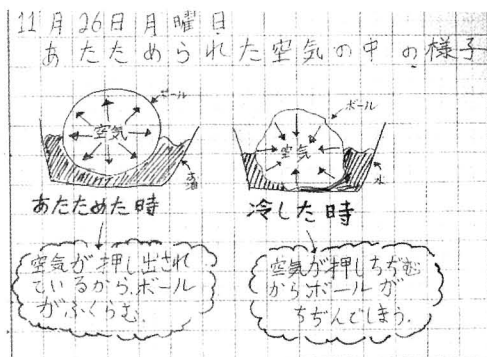 11月26日月曜日
あたためられた空気の中の様子
ボール
空気
お湯
あたためた時
空気が押し出され
ているから、ボール
がふくらむ。
ボール
空気
水
冷した時
空気が押しちぢむ
からボールが
ちぢんでしまう。